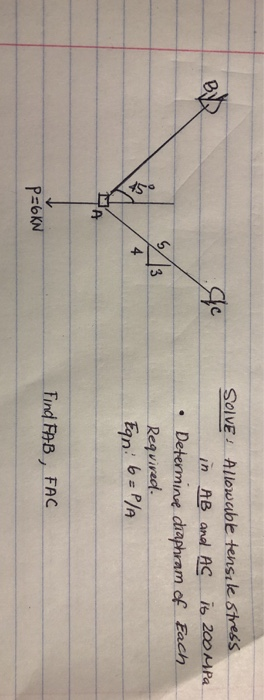 SOLVE: Allowable tensile stress
in AB and AC is 200MPa
• Determine diaphram of Each
Required.
Eqn: 6 = P/A
Find FAB, FAC
B
C
45°
5
3
4
A
P=6KN